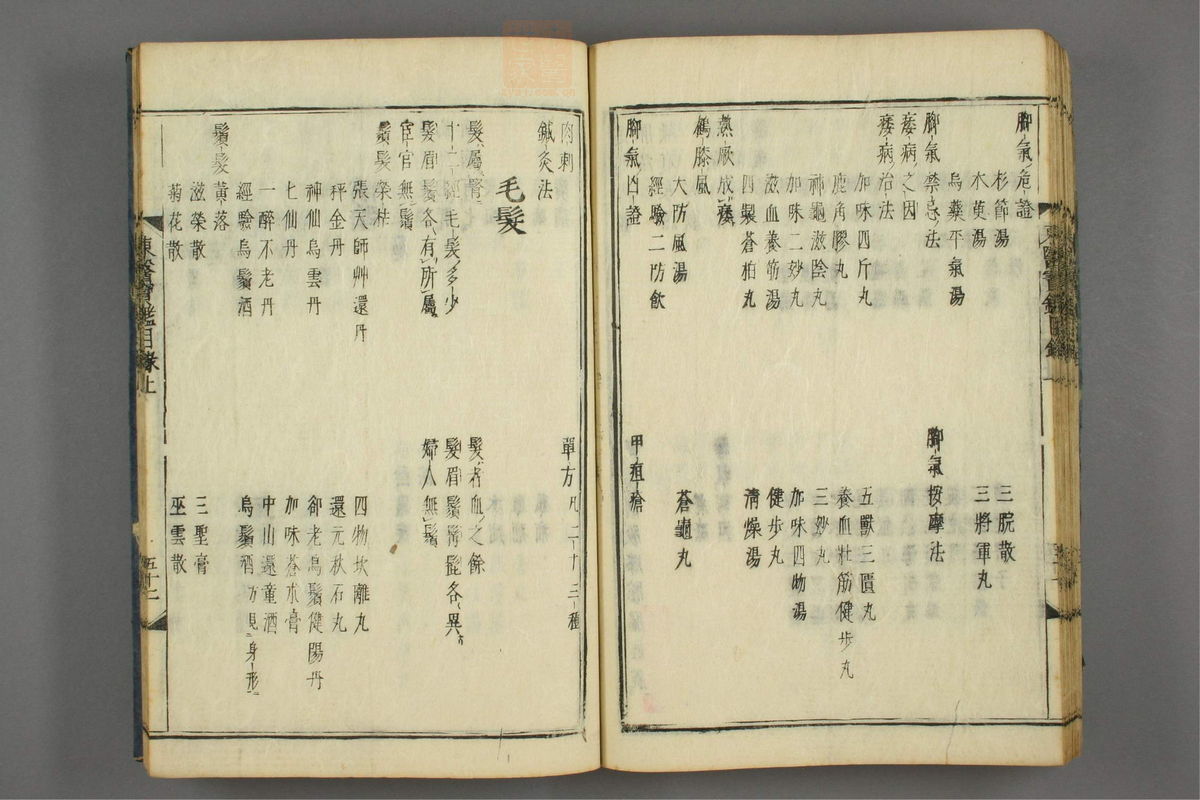 腳氣危證
杉節湯　三脘散
木萸湯　三將軍丸
烏藥平氣湯
腳氣禁忌法　腳氣按摩法
痿病之因
痿病治法
加味四斤丸　五獸三匱丸
鹿角膠丸　養血壯筋健步丸
神龜滋陰丸　三妙丸
加味二妙丸　加味四物湯
滋血養筋湯　健步丸
四製蒼柏丸　清燥湯
熱厥成痿
鶴膝風
大防風湯　蒼龜丸
經驗二防飲
腳氣凶證　甲疽瘡
肉刺　單方凡二十三種
鍼灸法
毛髮
髮屬腎　髮者血之餘
十二經毛髮多少　髮眉鬚髯髭各異
髮眉鬚各有所屬　婦人無鬚
宦官無鬚
鬚髮榮枯
張天師艸還丹　四物坎離丸
秤金丹　還元秋石丸
神仙烏雲丹　卻老烏鬚健陽丹
七仙丹　加味蒼朮膏
一醉不老丹　中山還童酒
經驗烏鬚酒　烏鬚酒方見身形
鬚髮黃落
滋榮散　三聖膏
菊花散　巫雲散
東醫寶鑑目錄上